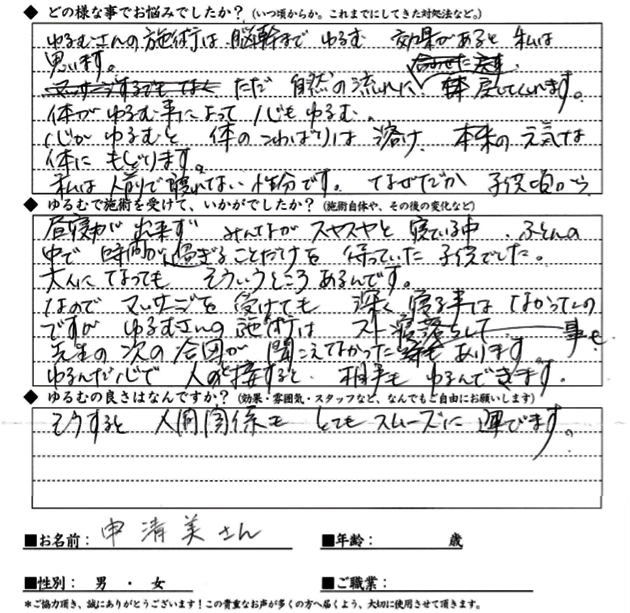 ◆ どの様な事でお悩みでしたか？（いつ頃からか。これまでにしてきた対処法など。）
ゆるむさんの施術は脳幹まで ゆるむ 効果があると 私は
思います。
ただ 自然の流れに 合わせた 戻してくれます。
体がゆるむ事によって 心も ゆるむ、
心が ゆるむと 体の つっぱりは 溶け、本来の 元気な
体に もどります。
私は 人前で 眠れない 性分です。なぜだか 子供頃から、
◆ ゆるむで施術を受けて、いかがでしたか？（施術自体や、その後の変化など）
昼寝が 出来ず みんなが スヤスヤと 寝ている中、ふとんの
中で 時間が 過ぎることだけを 待っていた 子供でした。
大人に なっても そういうところ あるんです。
なので マッサージを 受けても 深く 寝る事は なかったの
ですが ゆるむさんの 施術は ストン 寝落ちして 事も
先生の 次の 合図が 聞こえてなかった 事も あります
ゆるんだ心で 人と接すると 相手も ゆるんできます。
◆ ゆるむの良さはなんですか？（効果・雰囲気・スタッフなど、なんでもご自由にお願いします）
そうすると 人間関係も とても スムーズに 運びます。
■お名前： 申 清 美 さん
■年齢： 歳
■性別： 男 ・ 女
■ご職業：
＊ご協力頂き、誠にありがとうございます！この貴重なお声が多くの方へ届くよう、大切に使用させて頂きます。